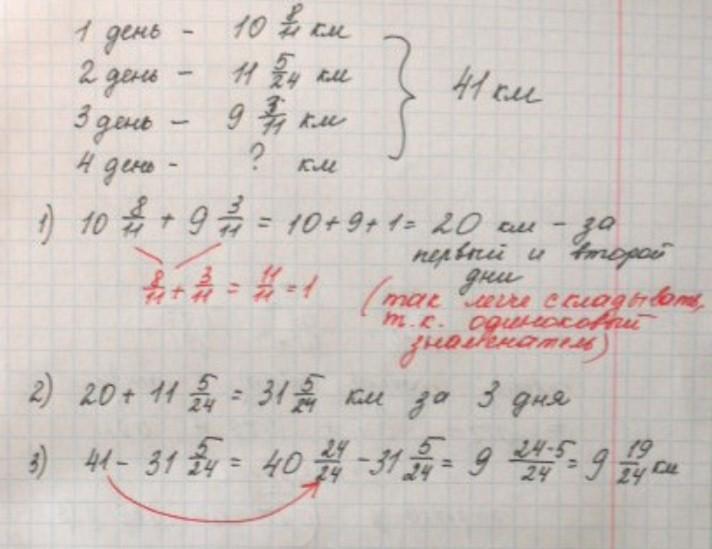 1 день - 10 8/11 км
2 день - 11 5/24 км
3 день - 9 3/11 км
4 день - ? км
} 41 км
1) 10 8/11 + 9 3/11 = 10+9+1= 20 км - за
первый и второй
дни
8/11 + 3/11 = 11/11 = 1
(так легче складывать,
т.к. одиноковый
знаменатель)
2) 20 + 11 5/24 = 31 5/24 км за 3 дня
3) 41 - 31 5/24 = 40 24/24 - 31 5/24 = 9 24-5/24 = 9 19/24 км